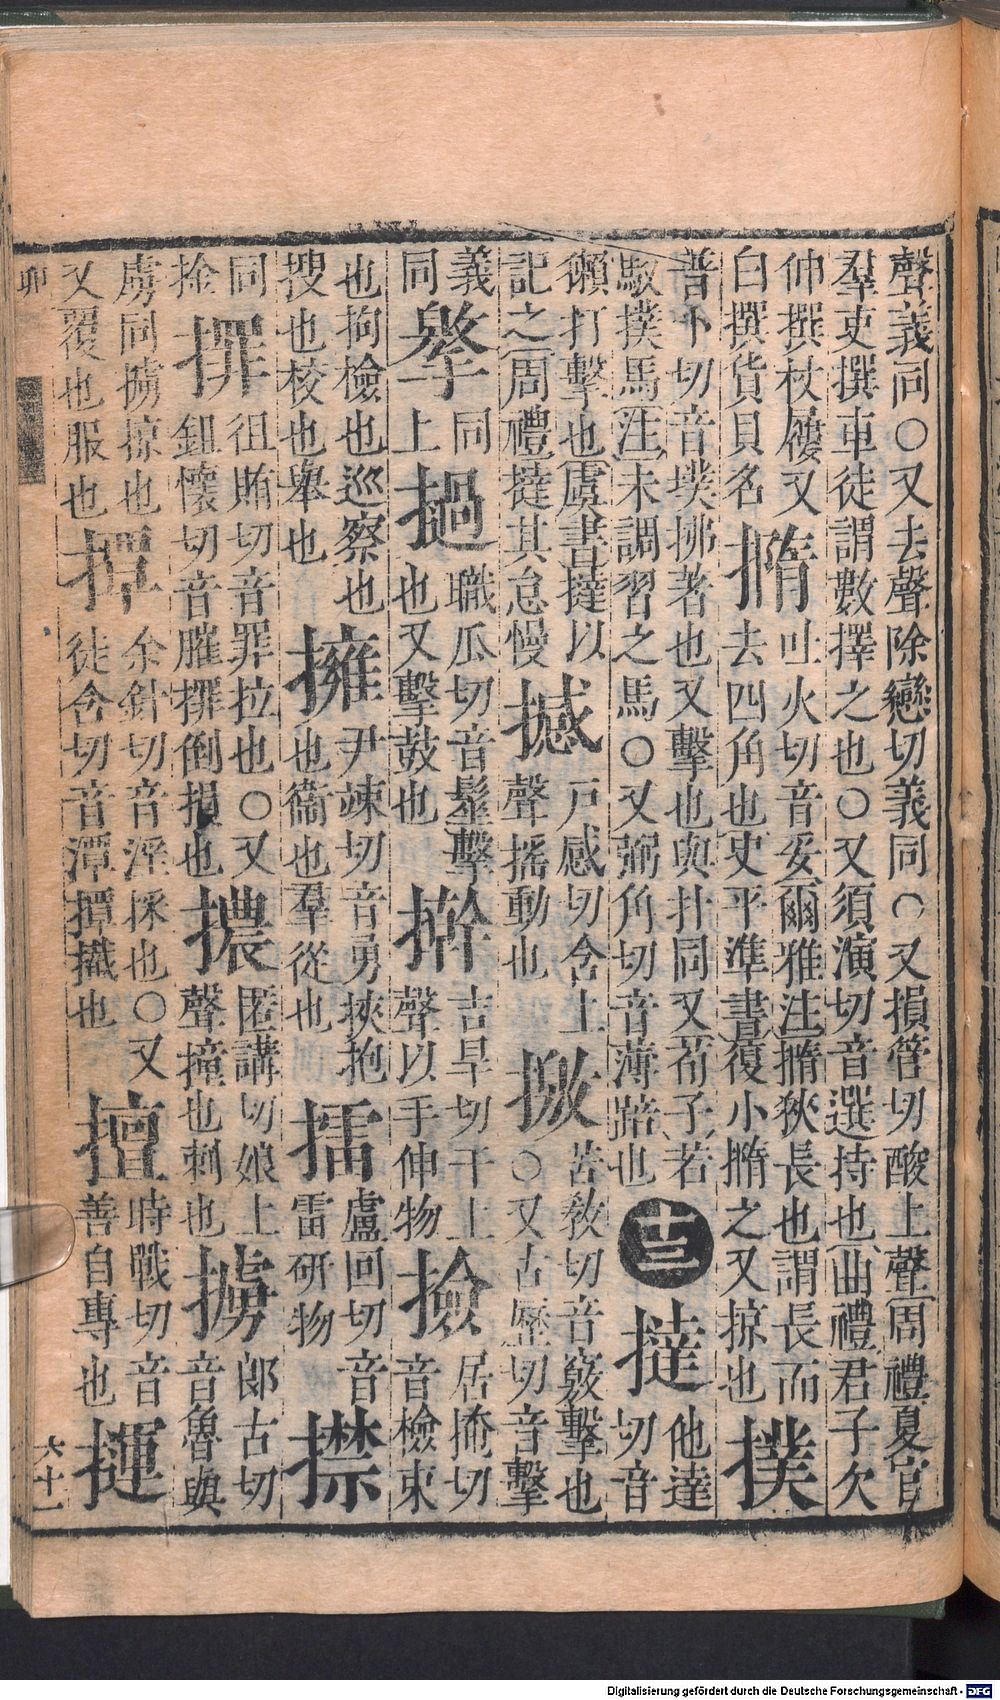 聲義同○又去聲除戀切義同○又損管切酸上聲周禮夏官
羣吏撰車徒謂數擇之也○又須演切音選持也曲禮君子欠
伸撰杖屨又
白撰貨貝名
撱
吐火切音妥爾雅注撱狹長也謂長而
去四角也史平準書復小撱之又掠也
撲
普卜切音墣拂著也又擊也與扑同又荀子若
馭撲馬注未調習之馬○又弼角切音薄踣也
十三
撻
他達
切音
獺打擊也虞書撻以
記之周禮撻其怠慢
撼
戸感切含上
聲搖動也
撽
苦敎切音竅擊也
○又古歷切音擊
義
同
同
上
撾
職瓜切音髽擊
也又擊鼓也
擀
吉旱切干上
聲以手伸物
撿
居掩切
音檢束
也拘檢也巡察也
搜也校也舉也
擁
尹竦切音勇挾抱
也衞也羣從也
擂
盧回切音
雷研物
㩒
同
捦
徂賄切音罪拉也○又
鈕懷切音膗撰倒損也
擃
匿講切娘上
聲撞也刺也
擄
郎古切
音魯與
虜同擄掠也
又覆也服也
撢
余針切音淫探也○又
徒含切音潭撢也
擅
時戰切音
善自專也
卯
六十一
Digitalisierung gefördert durch die Deutsche Forschungsgemeinschaft - DFG